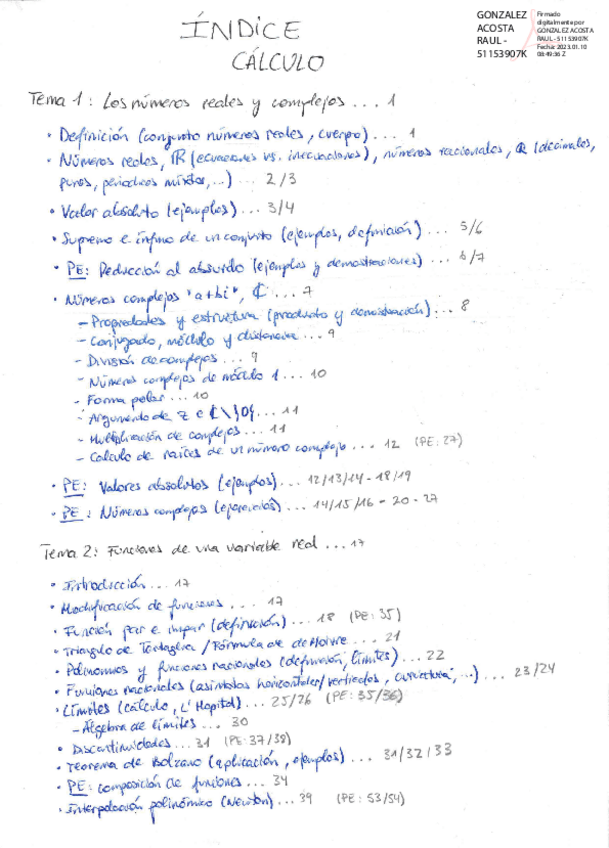 ÍNDICE
CÁLCULO
GONZALEZ
ACOSTA
RAUL -
51153907K
Firmado
digitalmente por
GONZALEZ ACOSTA
RAUL - 51153907K
Fecha: 2023.01.10
08:49:36 Z
Tema 1: Los números reales y complejos ... 1
• Definición (conjunto números reales, cuerpo) ... 1
• Números reales, ℝ (ecuaciones vs. inecuaciones), números racionales, ℚ (decimales,
puros, periodicos mixtos,...) ... 2/3
• Valor absoluto (ejemplos) ... 3/4
• Supremo e ínfimo de un conjunto (ejemplos, definición) ... 5/6
• PE: Reducción al absurdo (ejemplos y demostraciones) ... 6/7
• Números complejos "a+bi", ℂ ... 7
- Propiedades y estructura (producto y demostración) ... 8
- Conjugado, módulo y distancia ... 9
- División de complejos ... 9
- Números complejos de módulo 1 ... 10
- Forma polar ... 10
- Argumento de z e ℂ\{0} ... 11
- Multiplicación de complejos ... 11
- Calculo de raíces de un número complejo ... 12 (PE: 27)
• PE: Valores absolutos (ejemplos) ... 12/13/14 - 18/19
• PE: Números complejos (ejercicios) ... 14/15/16 - 20 - 27
Tema 2: Funciones de una variable real ... 17
• Introducción ... 17
• Modificación de funciones ... 17
• Función par e impar (definición) ... 18 (PE: 35)
• Triangulo de Tartaglia / Fórmula de de Moivre ... 21
• Polinomios y funciones racionales (definición, límites) ... 22
• Funciones racionales (asíntotas horizontales/verticales, curvatura, ...) ... 23/24
• Límites (cálculo, L'Hopital) ... 25/26 (PE: 35/36)
- Álgebra de límites ... 30
• Discontinuidades ... 31 (PE: 37/38)
• Teorema de Bolzano (aplicación, ejemplos) ... 31/32/33
• PE: composición de funciones ... 34
• Interpolación polinómica (Newton) ... 39 (PE: 53/54)